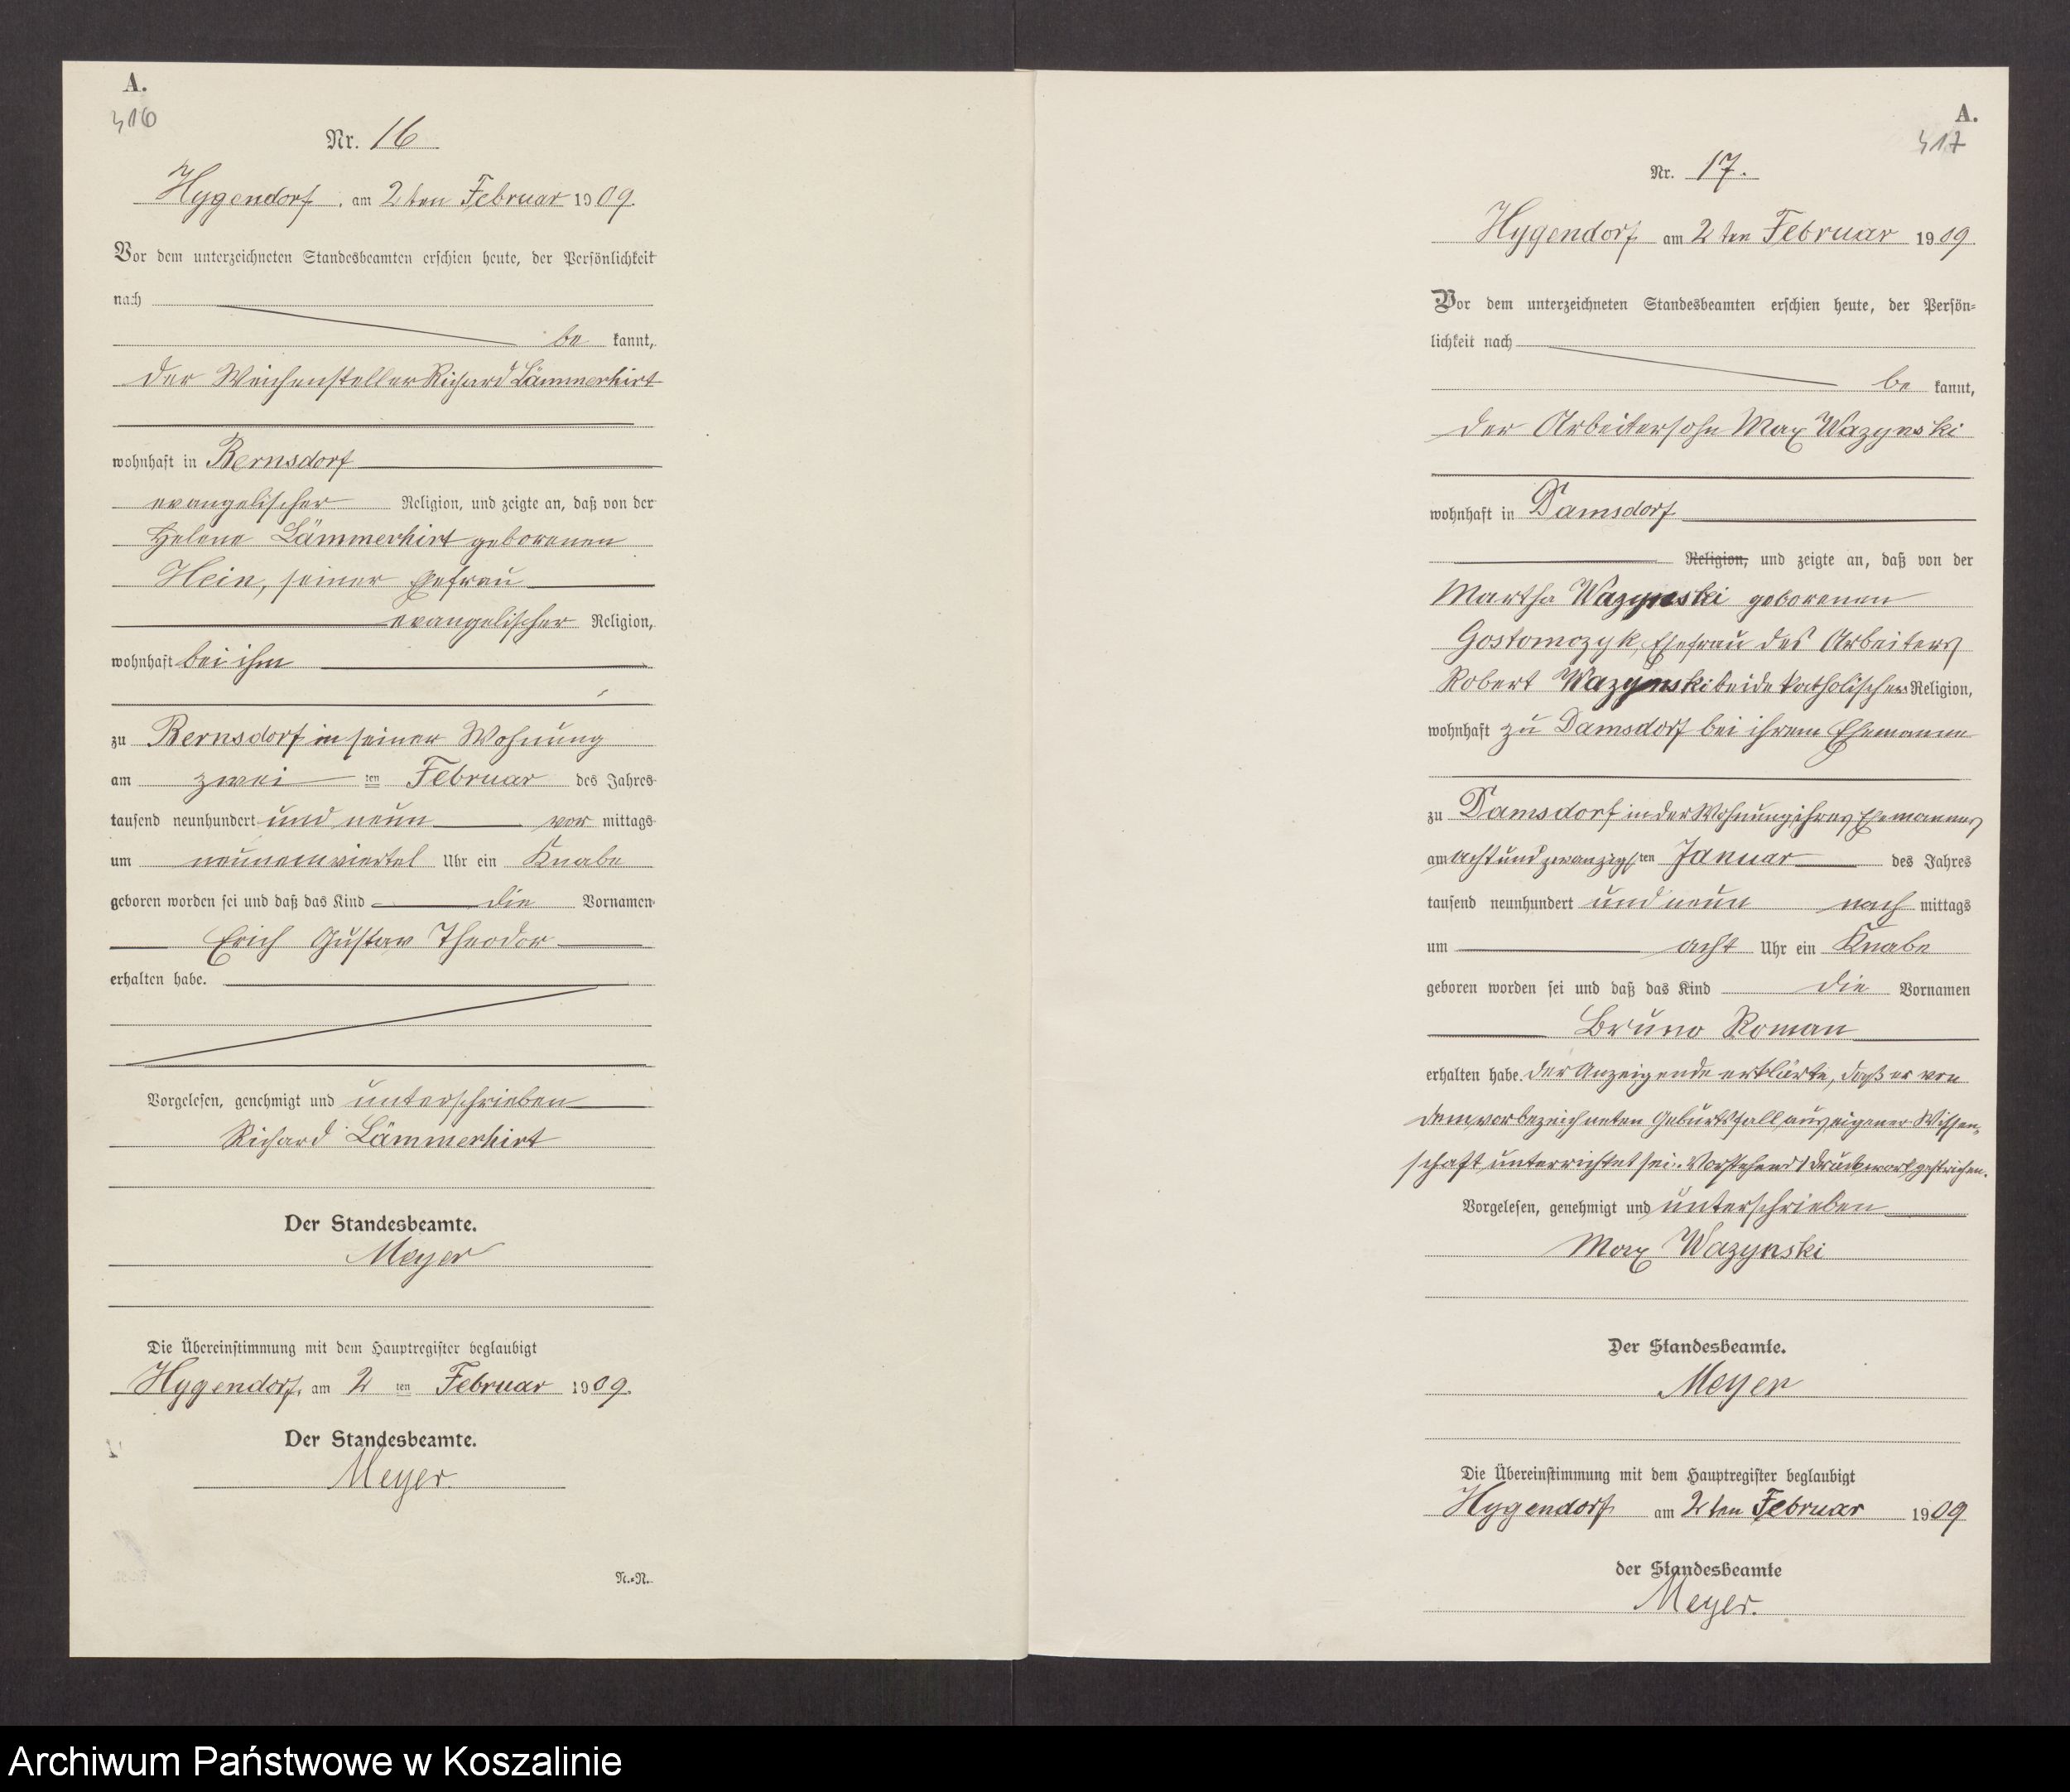 A.
416
Nr. 16
Hygendorf, am 2ten Februar 1909.
Vor dem unterzeichneten Standesbeamten erschien heute, der Persönlichkeit
nach
be kannt,
der Weichensteller Richard Lämmerhirt
wohnhaft in Bernsdorf
evangelischer Religion, und zeigte an, daß von der
Helene Lämmerhirt geborenen
Hein, seiner Ehefrau
evangelischer Religion,
wohnhaft bei ihm
zu Bernsdorf in seiner Wohnung
am zwei ten Februar des Jahres
tausend neunhundert und neun vor mittags
um neun ein viertel Uhr ein Knabe
geboren worden sei und daß das Kind die Vornamen
Erich Gustav Theodor
erhalten habe.
Vorgelesen, genehmigt und unterschrieben
Richard Lämmerhirt
Der Standesbeamte.
Meyer
Die Übereinstimmung mit dem Hauptregister beglaubigt
Hygendorf, am 2 ten Februar 1909.
Der Standesbeamte.
Meyer.
N.=N.
A.
417
Nr. 17.
Hygendorf am 2ten Februar 1909.
Vor dem unterzeichneten Standesbeamten erschien heute, der Persön=
lichkeit nach
be kannt,
der Arbeitersohn Max Wazynski
wohnhaft in Damsdorf
Religion, und zeigte an, daß von der
Martha Wazynski geborenen
Gostomczyk, Ehefrau des Arbeiters
Robert Wazynski beide katholischer Religion,
wohnhaft zu Damsdorf bei ihrem Ehemanne
zu Damsdorf in der Wohnung ihres Ehemannes
am acht und zwanzigsten Januar des Jahres
tausend neunhundert und neun nach mittags
um acht Uhr ein Knabe
geboren worden sei und daß das Kind die Vornamen
Bruno Roman
erhalten habe. Der Anzeigende erklärte, daß er von
dem vorbezeichneten Geburtsfall aus eigener Wissen=
schaft unterrichtet sei. Vorstehend 1 Druckwort gestrichen.
Vorgelesen, genehmigt und unterschrieben
Max Wazynski
Der Standesbeamte.
Meyer
Die Übereinstimmung mit dem Hauptregister beglaubigt
Hygendorf am 2ten Februar 1909
der Standesbeamte
Meyer.
Archiwum Państwowe w Koszalinie